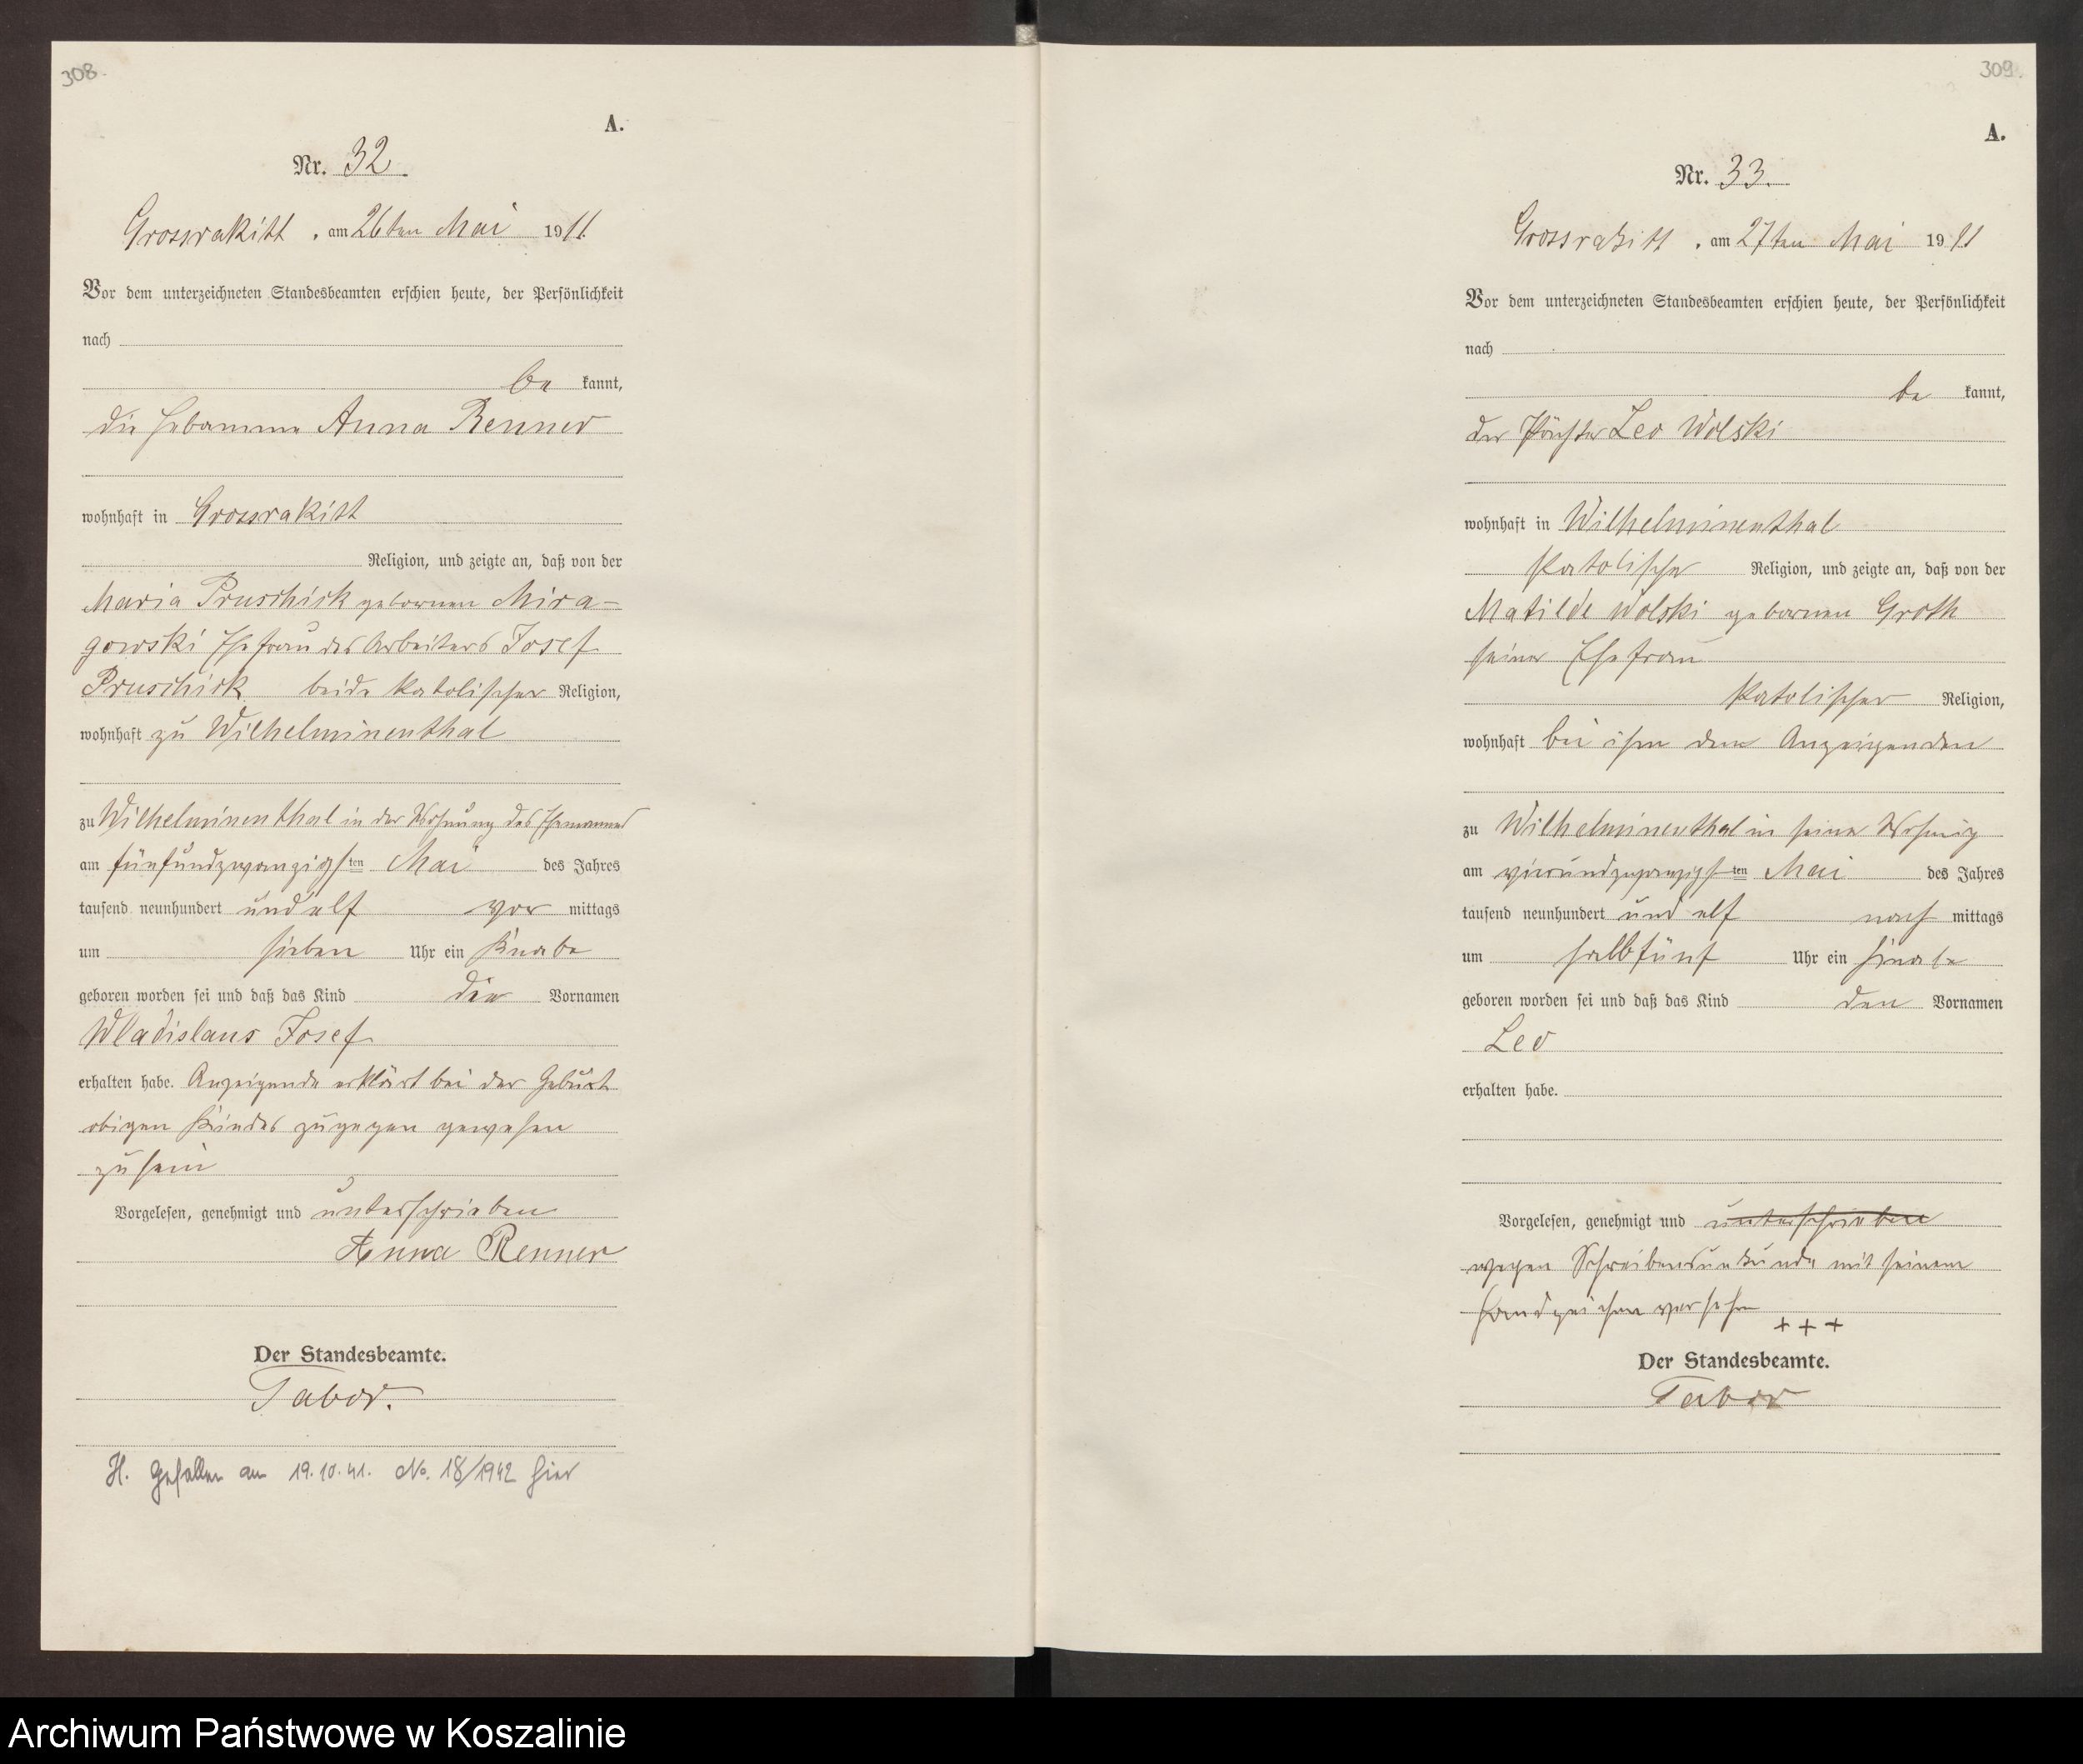 308.
A.
Nr. 32
Grossrakitt, am 26ten Mai 1911.
Vor dem unterzeichneten Standesbeamten erschien heute, der Persönlichkeit
nach
be kannt,
die Hebamme Anna Renner
wohnhaft in Grossrakitt
Religion, und zeigte an, daß von der
Maria Pruschick gebornen Mira-
gowski Ehefrau des Arbeiters Josef
Pruschick beide katolischer Religion,
wohnhaft zu Wilhelminenthal
zu Wilhelminenthal in der Wohnung des Ehemannes
am fünfundzwanzigsten Mai des Jahres
tausend neunhundert und elf vor mittags
um sieben Uhr ein Knabe
geboren worden sei und daß das Kind die Vornamen
Wladislaus Josef
erhalten habe. Anzeigende erklärt bei der Geburt
obigen Kindes zugegen gewesen
zu sein
Vorgelesen, genehmigt und unterschrieben
Anna Renner
Der Standesbeamte.
Tabor.
H. Gefallen am 19.10.41. No. 18/1942 hier
309.
A.
Nr. 33.
Grossrakitt, am 27ten Mai 1911
Vor dem unterzeichneten Standesbeamten erschien heute, der Persönlichkeit
nach
be kannt,
der Leo Wolski
wohnhaft in Wilhelminenthal
katolischer Religion, und zeigte an, daß von der
Matilde Wolski gebornen Groth
seiner Ehefrau
katolischer Religion,
wohnhaft bei ihm dem Anzeigenden
zu Wilhelminenthal in seiner Wohnung
am vierundzwanzigsten Mai des Jahres
tausend neunhundert und elf nach mittags
um halbfünf Uhr ein Knabe
geboren worden sei und daß das Kind den Vornamen
Leo
erhalten habe.
Vorgelesen, genehmigt und unterschrieben
wegen Schreibensunkunde mit seinem
Handzeichen versehen
+++
Der Standesbeamte.
Tabor
Archiwum Państwowe w Koszalinie